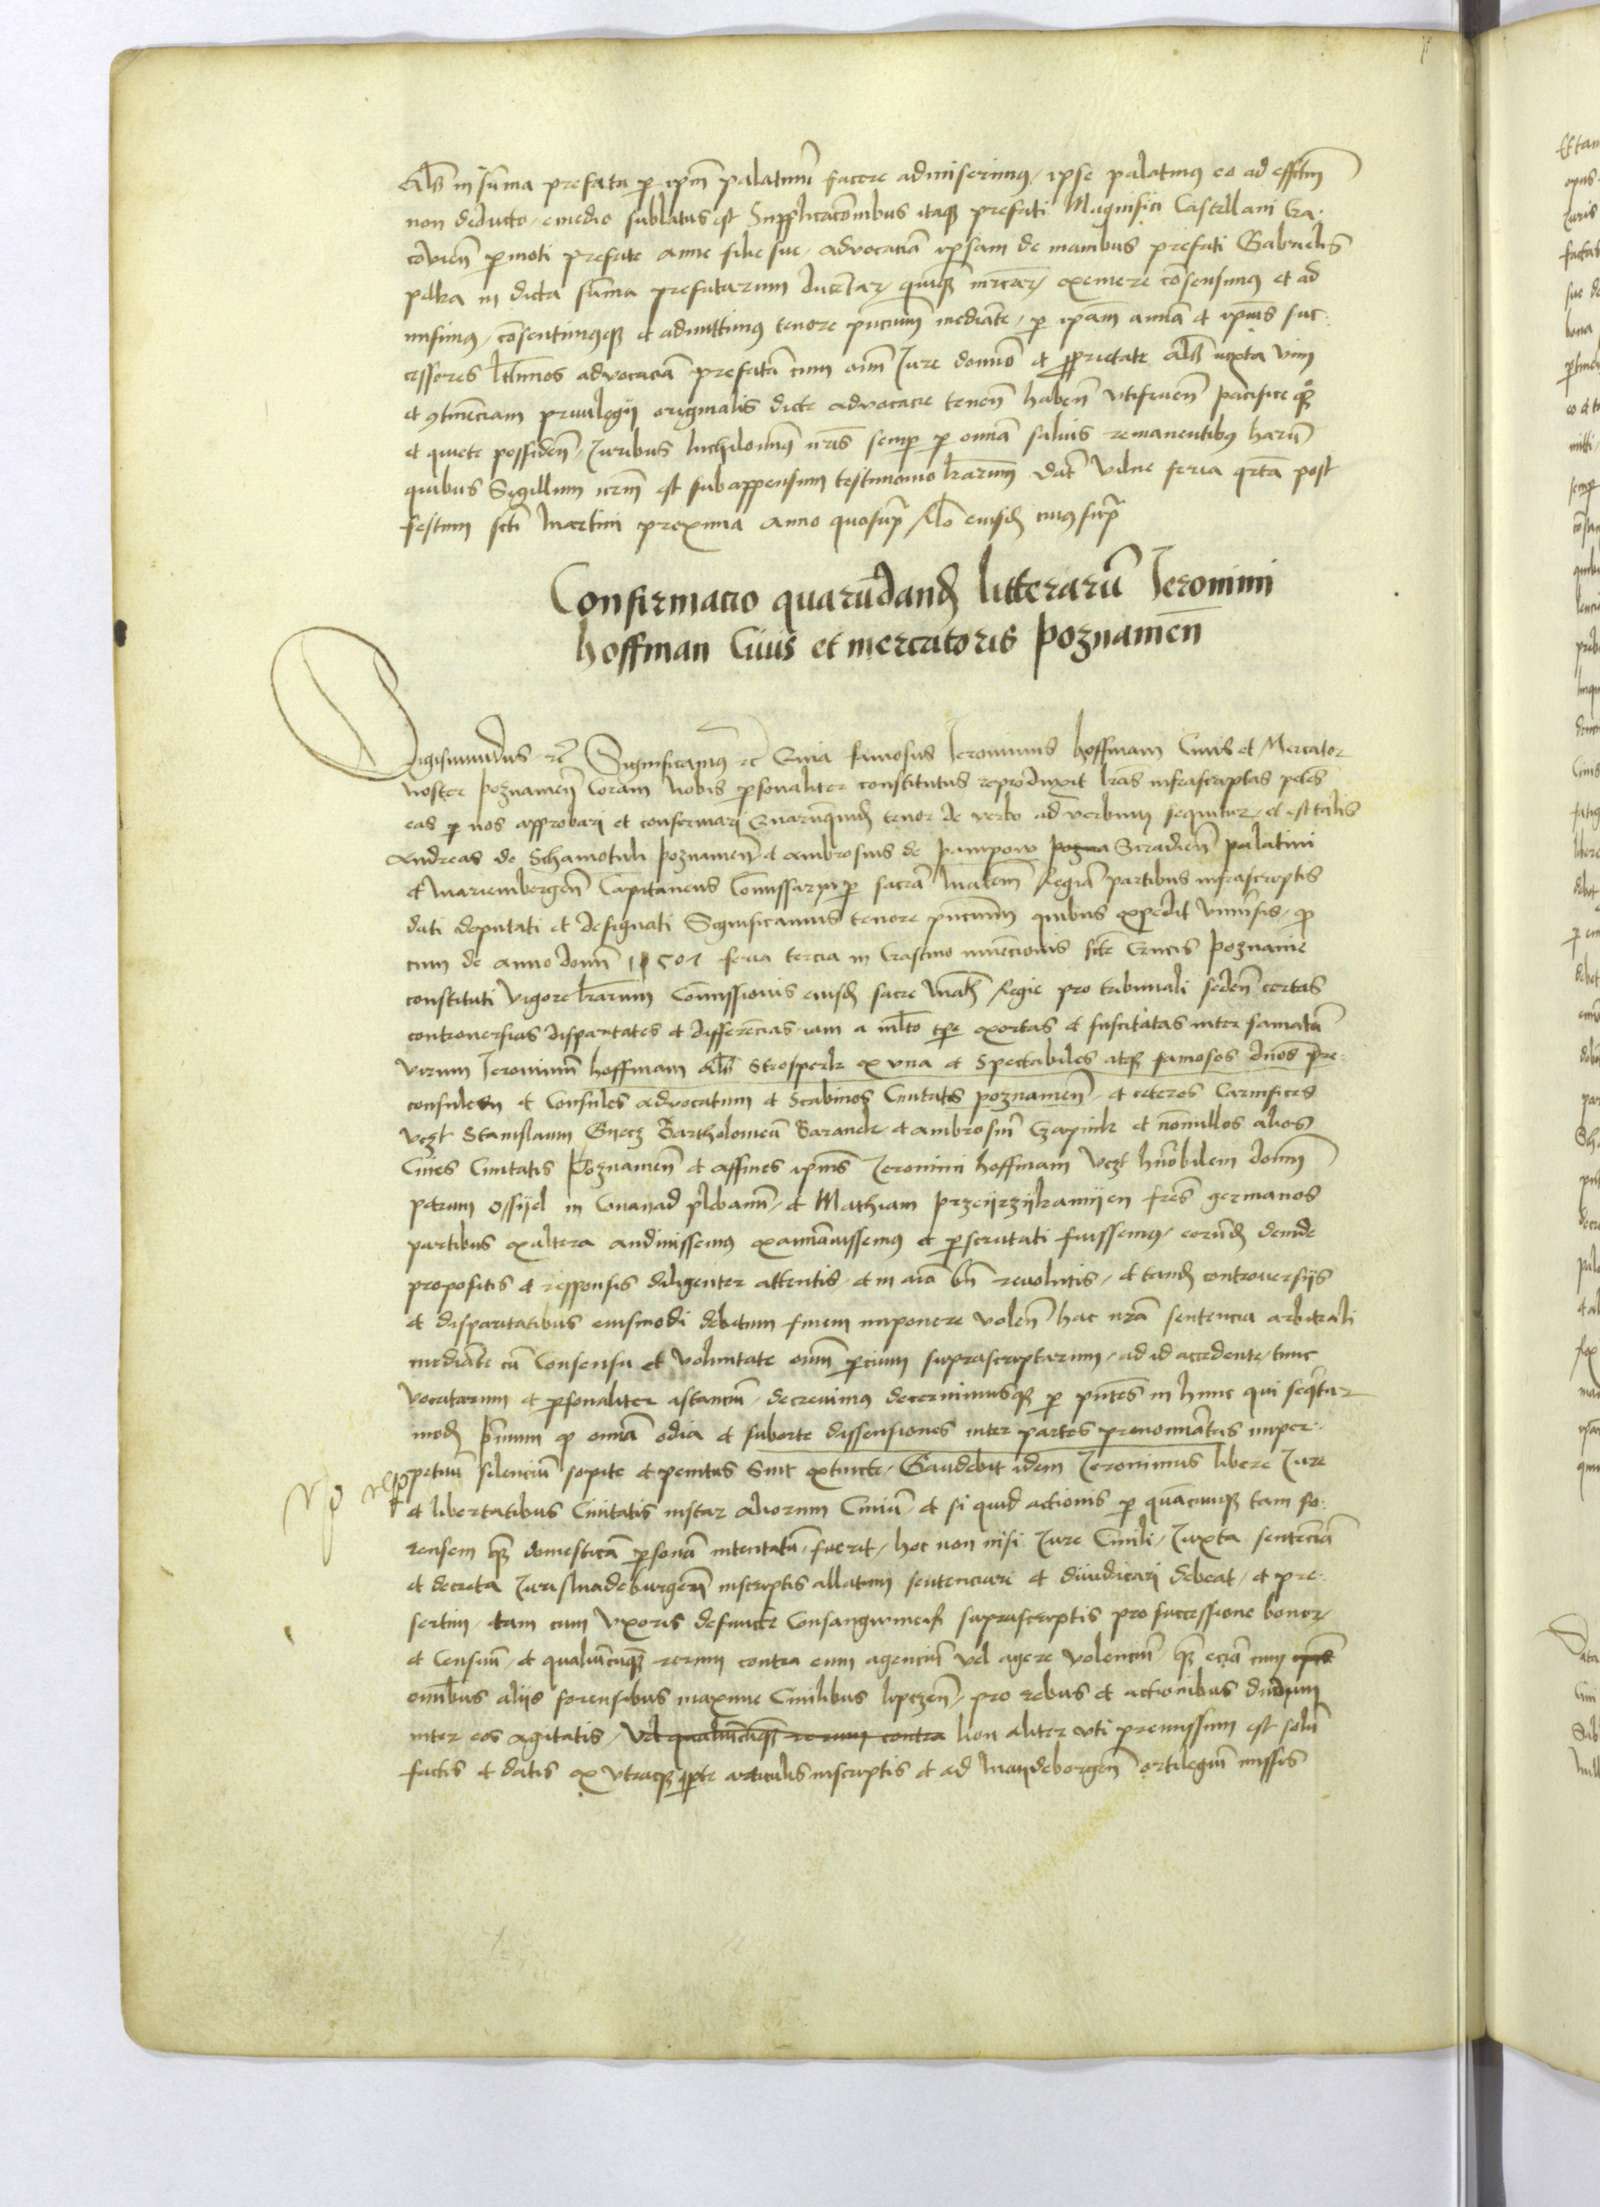 Als in suma prefata p ipm palatinu facere admiserimus, ipse palatinus eo ad effctm
non deducto, emedio sublatus est Supplicacionibus itaq prefati Magnifici Castellani Cra-
covien pmoti prefate Anne filie sue, advocatia ipsam de manibus prefati Gabrielis
in dicta suma prefatarum ducentar quinq mrcar exemere consensimus et ad
misimus, consentimusq et admittimus tenore pntium mediante, p ipam annam et ipius suc-
cessores ltimos advocatia prefata cum omi Jure domio et pprietate als iuxta vim
et continenciam privilegij originalis dicte advocacie tenen haben utifruen pacifice
et quiete possiden, Juribus nris semp p omia salvis remanentibus harum
quibus Sigillum nrm est subappensum testimonio lrarum dat Vilne feria qrta post
festum scti Martini proxima anno quosup Rlo eiusd cuius sup
Confirmacio quarundand litteraru Jeronimi
hoffman Civis et mercatoris poznamen
Sigismundus etc Significamus etc Quia famosus Jeronimus hoffmam Civis et Mercator
noster poznamen Coram nobis psonaliter constitutus reproduxit lras infrascriptas petes
eas p nos approbari et confirmari Quarunquid tenor de verbo ad verbum sequitur et est talis
Andreas de Schamotuli poznamen et ambrosius de pampow pozna Siradien palatini
et Mariemborgen Capitaneus Comissarij p sacra Matem Regia partibus infrascriptis
dati deputati et designati Significamus tenore pntium quibus expedit Univsis, q
cum de anno domi 1501 feria tercia in Crastino invencionis scte Crucis poznanie
constituti vigore lrarum Comissionis eiusd sacre Mats Regie pro tribunali seden certas
controversias disparitates et differencias iam a mlto tpe exortas et suscitatas inter famatu
virum Jeronimu hoffmam als Strosperk ex una et Spectabiles atq famosos dnos pre-
consulem et Consules advocatum et Scabinos Civitatis poznamen, et ceteros Carnifices
vczt Stanislaum Gyecz Bartholomeu Baranek, et ambrosiu Czapink et nonnullos alios
Cives Civitatis Poznamen et affines ipius Jeronimi hoffmam vczt honobilem domi
petrum Ossyel in plebanu, et Mathiam frcs germanos
partibus exaltera audivissemus examinavissemus et pscrutati fuissemus, eorund deinde
propositis et responsis diligenter attentis, et in aia bn revolutis, et tand controversijs
et disparitatibus eiusmodi debitum finem imponere volen hac nra sentencia arbitrali
mediante cu Consensu et voluntate omiu pcium suprascriptarum, ad id accedente, tunc
vocatarum et psonaliter astanciu, decrevimus decernimusq p pntes in hunc qui seqtur
mod primum q omia odia et suborte dissensiones inter partes prenominatas imper-
petuu silenciu sopite et penitus sint extincte, Gaudebit idem Jeronimus libere Jure
et libertatibus Civitatis instar aliorum Civiu, et si quid actionis p quacunq tam fo-
rensem q domestica psona intentatu fuerit, hoc non nisi Jure Civili, Juxta sentencia
et decreta Juris madeburgen inscriptis allatum sentenciari et diiudicari debeat, et pre-
sertim, tam cum Uxoris defuncte Consanguineis suprascriptis pro successione bonor
et Censuu, et qualiucunq rerum contra eum agenciu vel agere volenciu, q ecia cum ipis
omibus alijs forensibus maxime Civilibus lipczen, pro rebus et actionibus dudum
inter eos agitatis, vel qualiucunq rerum contra Non aliter uti premissum est solu
factis et datis ex utraq pte articulis inscriptis et ad Maydeborgen ortilegiu missis